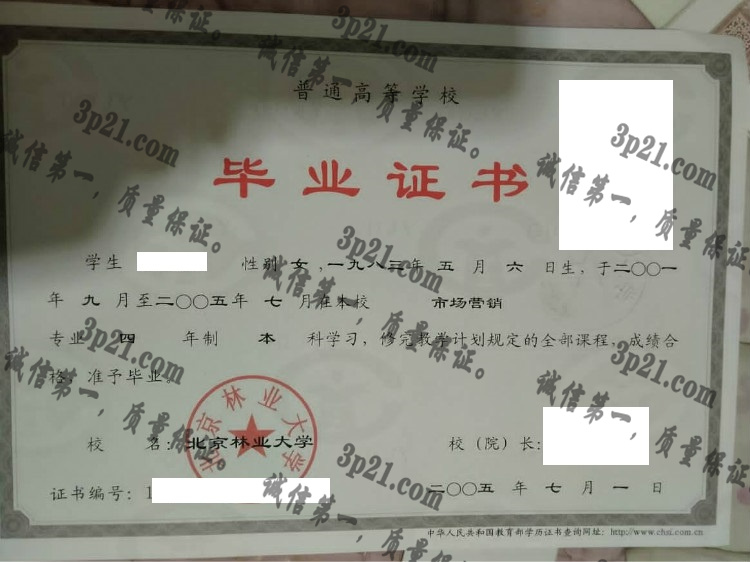 普通高等学校
毕业证书
学生 性别 女 , 一九八三年 五 月 六 日生, 于二〇〇一
年 九 月至二〇〇五年 七 月在本校 市场营销
专业 四 年制 本 科学习, 修完教学计划规定的全部课程, 成绩合
格, 准予毕业。
北京林业大学
校 名: 北京林业大学 校（院）长:
证书编号: 1
二〇〇五 年 七 月 一 日
中华人民共和国教育部学历证书查询网址: http://www.chsi.com.cn
3p21.com
诚信第一，质量保证。
3p21.com
诚信第一，质量保证。
3p21.com
诚信第一，质量保证。
3p21.com
诚信第一，质量保证。
3p21.com
诚信第一，质量保证。
3p21.com
诚信第一，质量保证。
3p21.com
诚信第一，质量保证。
3p21.com
诚信第一，质量保证。